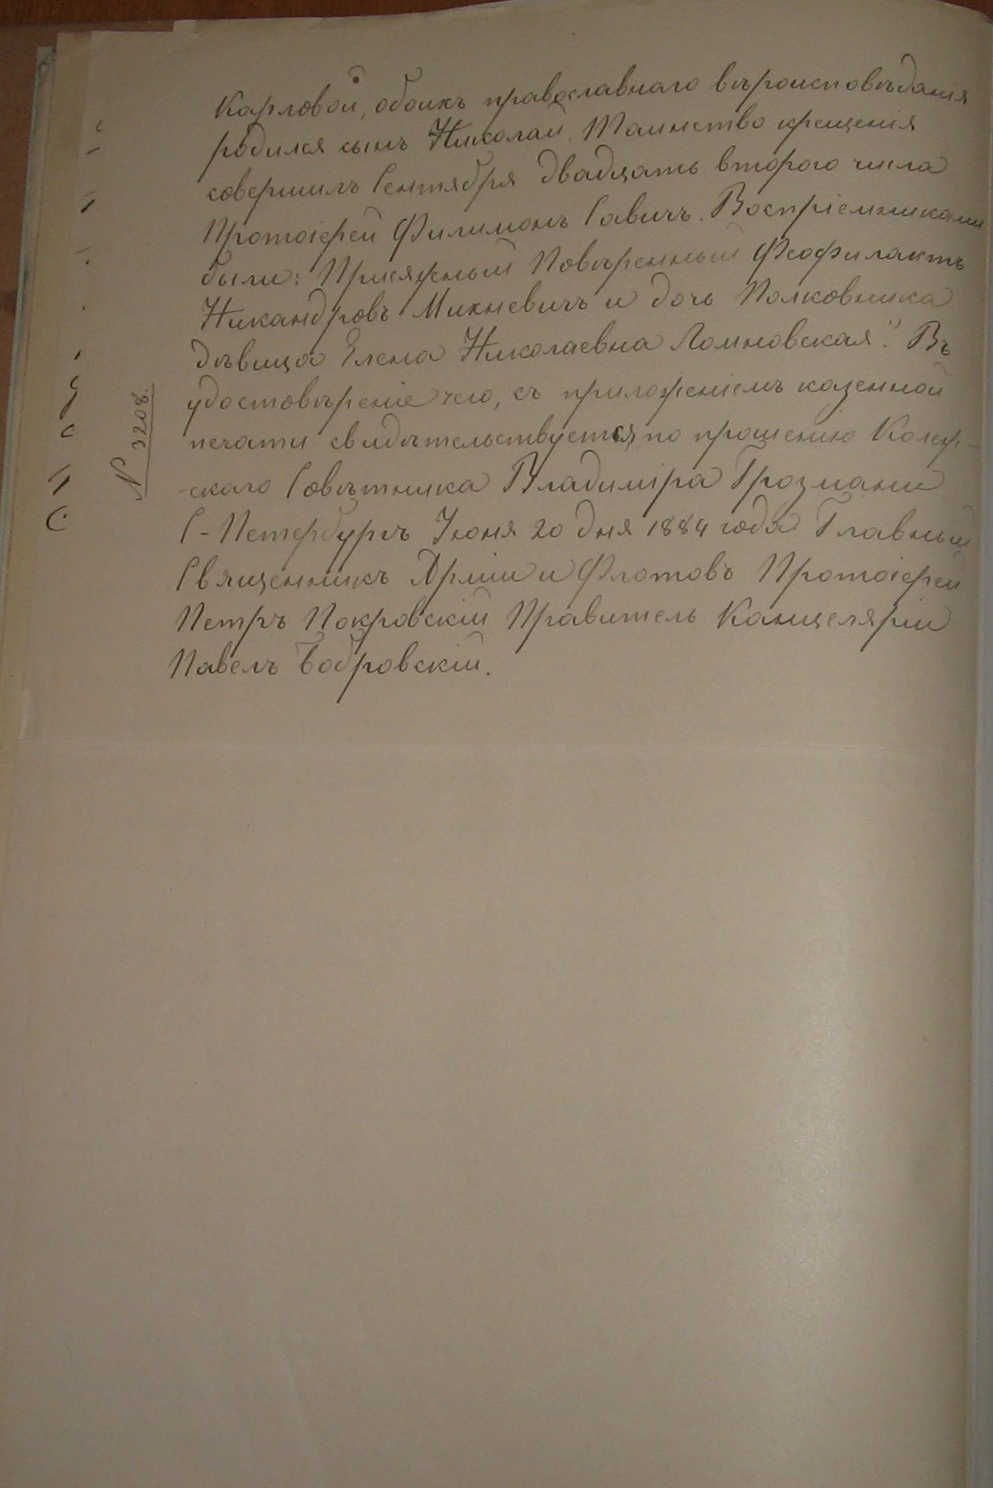 Карловой, обоихъ православнаго вѣроисповѣданія
родился сынъ Николай. Таинство крещенія
совершилъ Сентября двадцать второго числа
Протоіерей Филимонъ Савичъ. Воспріемниками
были: Присяжный Повѣренный Феофилактъ
Никандровъ Михневичъ и дочь Полковника
дѣвица Елена Николаевна Ломновская". Въ
удостовѣреніе чего, съ приложеніемъ казенной
печати свидѣтельствуется, по прошенію Колеж-
-скаго Совѣтника Владиміра Грозмани
С-Петербургъ Іюня 20 дня 1884 года Главный
Священникъ Арміи и Флотовъ Протоіерей
Петръ Покровскій Правитель Канцеляріи
Павелъ Бобровскій.
№ 3208.